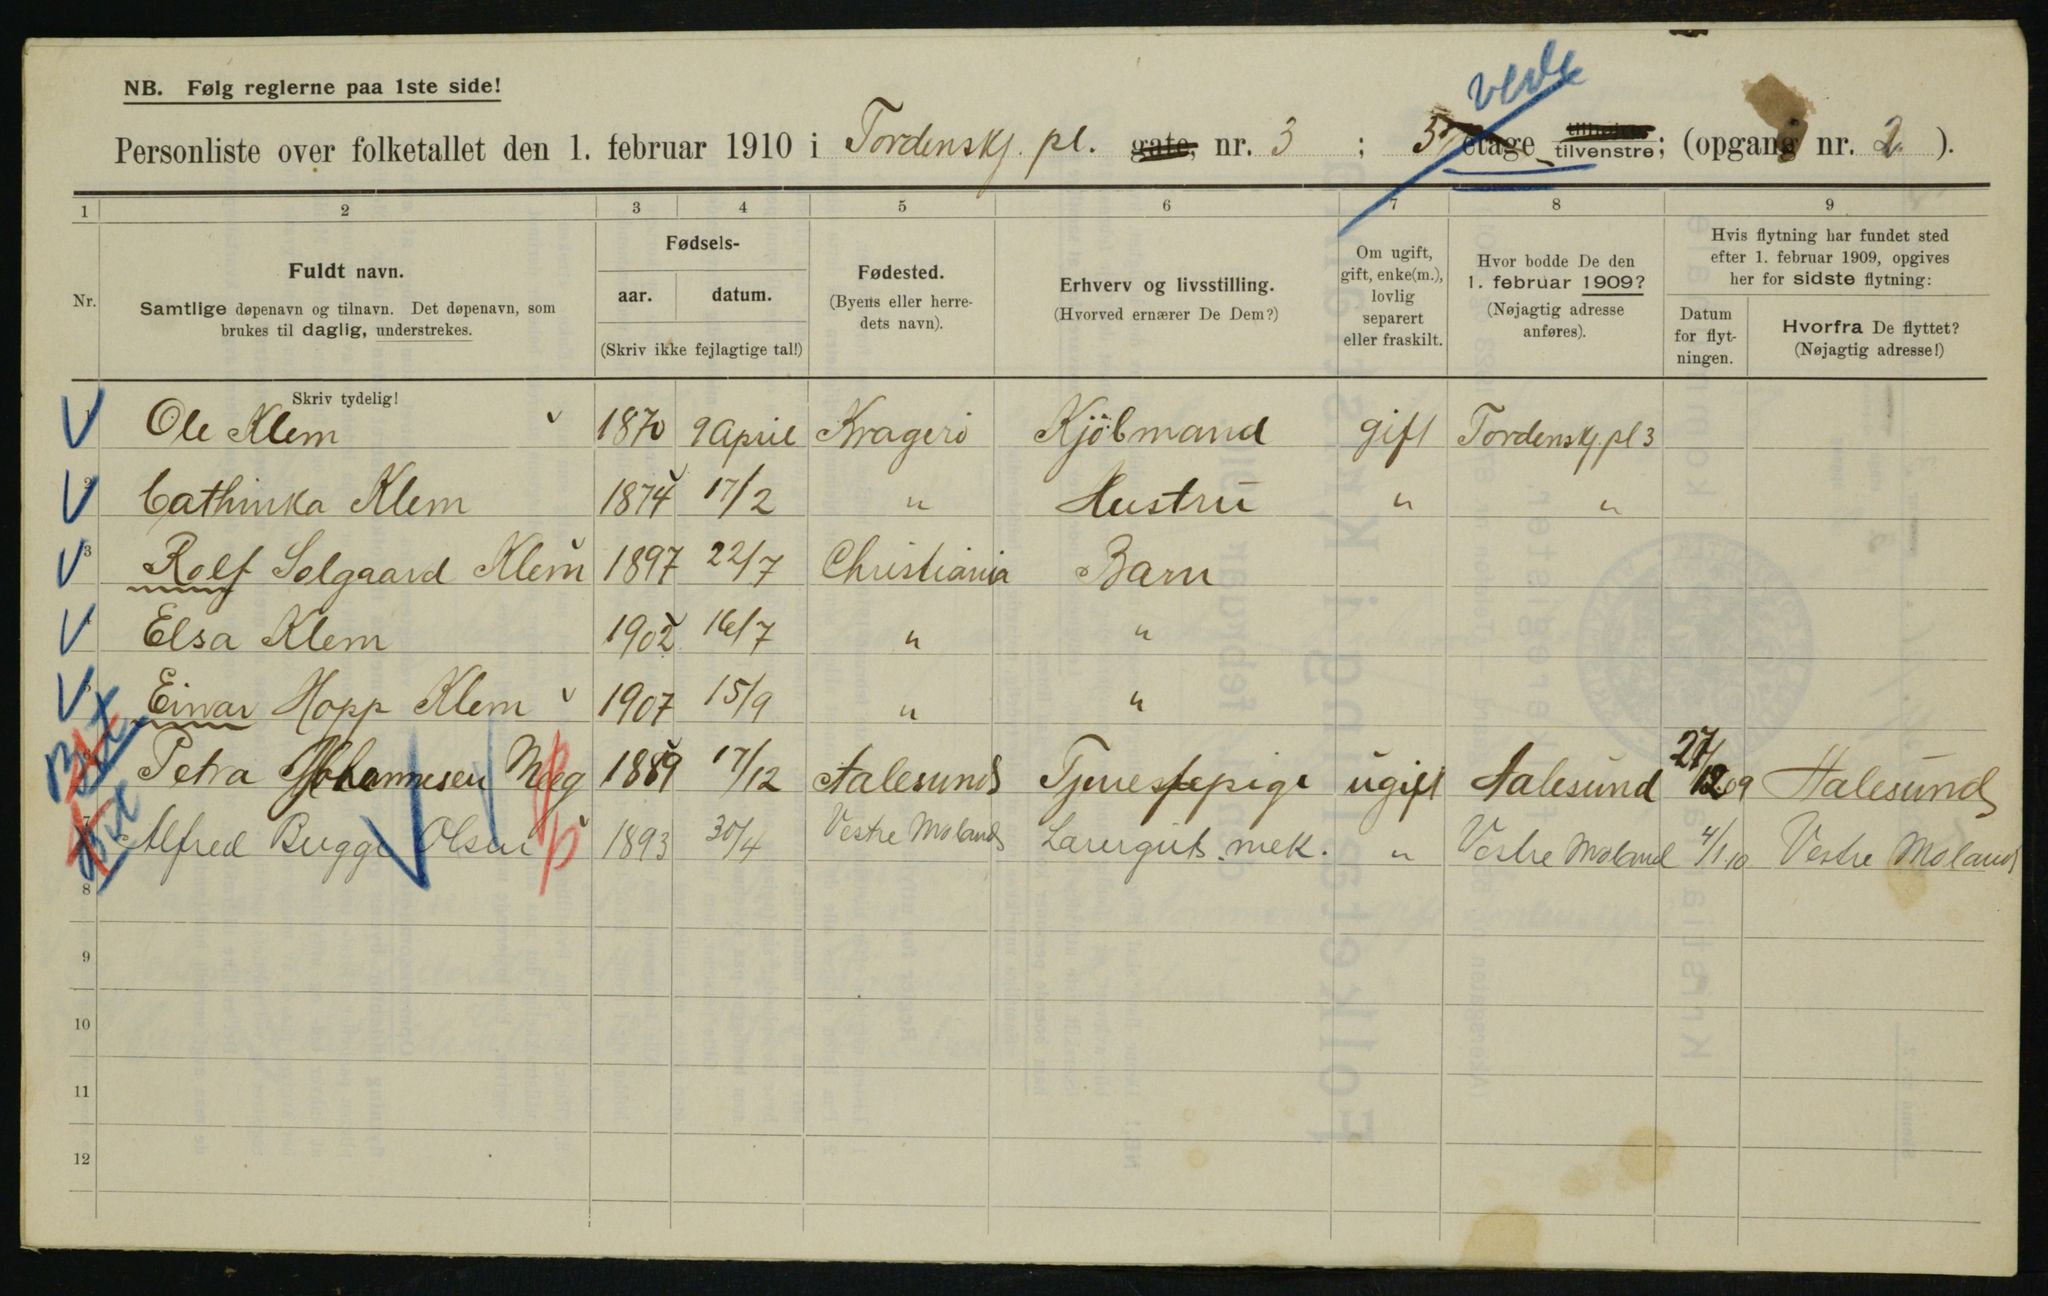 NB. Følg reglerne paa 1ste side!
vede
Personliste over folketallet den 1. februar 1910 i Tordenskj. pl. gate, nr. 3 ; 5 etage tilhøire tilvenstre; (opgang nr. 2 ).
1 2 3 4 5 6 7 8 9
Nr.
Fuldt navn.
Samtlige døpenavn og tilnavn. Det døpenavn, som
brukes til daglig, understrekes.
Fødsels-
aar. datum.
(Skriv ikke fejlagtige tal!)
Fødested.
(Byens eller herre-
dets navn).
Erhverv og livsstilling.
(Hvorved ernærer De Dem?)
Om ugift,
gift, enke(m.),
lovlig
separert
eller fraskilt.
Hvor bodde De den
1. februar 1909?
(Nøjagtig adresse
anføres).
Hvis flytning har fundet sted
efter 1. februar 1909, opgives
her for sidste flytning:
Datum
for flyt-
ningen.
Hvorfra De flyttet?
(Nøjagtig adresse!)
Skriv tydelig!
1 Ole Klem 1870 9 April Kragerö Kjöbmand gift Tordenskj. pl 3
2 Cathinka Klem 1874 17/2 " Hustru " "
3 Rolf Solgaard Klem 1897 22/7 Christiania Barn
4 Elsa Klem 1902 16/7 " "
5 Einar Hopp Klem 1907 15/9 " "
6 Petra Johannesen 1889 17/12 Aalesund Tjenestepige ugift Aalesund 27/12.09 Aalesund
7 Alfred Bugge Olsen 1893 30/4 Vestre Moland Lærergut. mek. " Vestre Moland 4/1.10 Vestre Moland
8
9
10
11
12